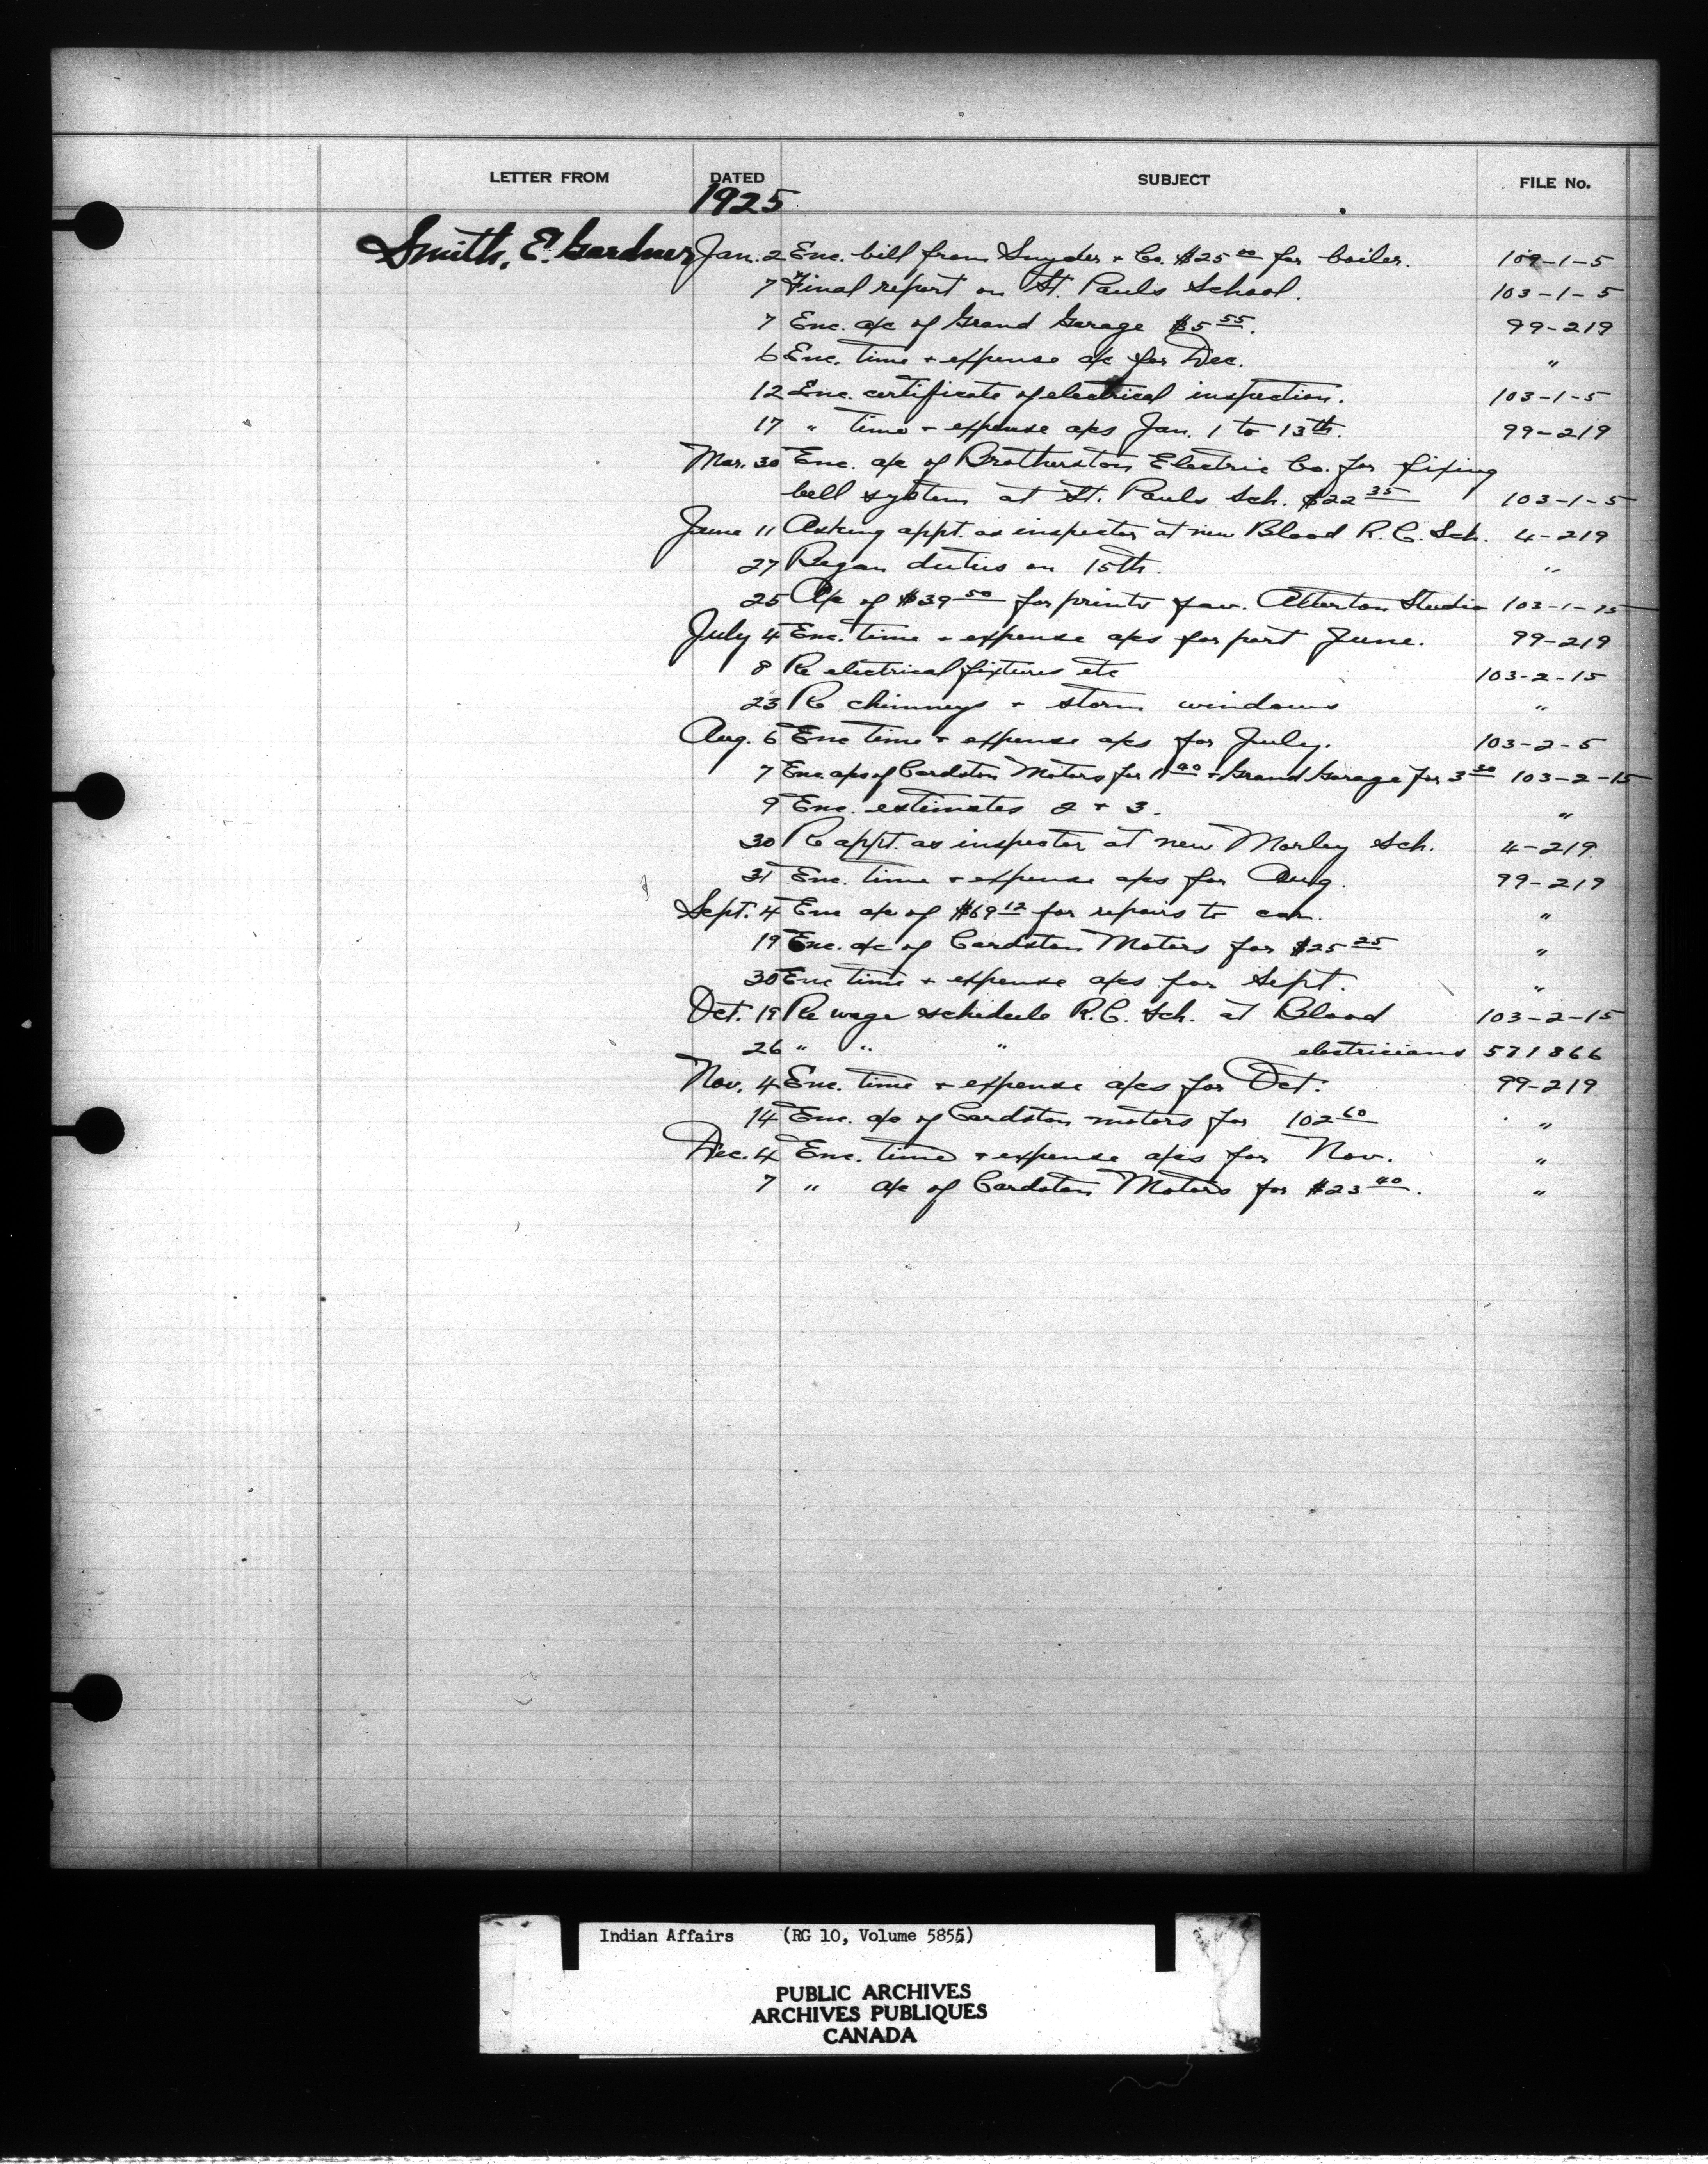 LETTER FROM DATED SUBJECT FILE No.
1925
Smith, E. Gardner Jan. 2 Enc. bill from Snyder + Co. $25 00 for boiler. 109-1-5
7 Final report on St. Pauls School. 103-1-5
7 Enc. a/c of Grand Garage $5 55. 99-219
6 Enc. time + expense a/c for Dec. "
12 Enc. certificate of electrical inspection. 103-1-5
17 " time + expense a/cs Jan. 1 to 13th. 99-219
Mar. 30 Enc. a/c of Brotherston Electric Co. for fixing
bell system at St. Pauls Sch. $22 35 103-1-5
June 11 Asking appt. as inspector at new Blood R.C. Sch. 4-219
27 Began duties on 15th. "
25 A/c of $39 50 for prints fav. Atterton Studio 103-1-15
July 4 Enc. time + expense a/cs for part June. 99-219
8 Re electrical fixtures etc 103-2-15
23 Re chimneys + storm windows "
Aug. 6 Enc time + expense a/cs for July. 103-2-5
7 Enc. a/cs of Cardston Motors for 11 40 + Grand Garage for 3 30 103-2-15
9 Enc. estimates 2 + 3. "
30 Re appt. as inspector at new Morley Sch. 4-219
31 Enc. time + expense a/cs for Aug. 99-219
Sept. 4 Enc a/c of $69 12 for repairs to car. "
19 Enc. a/c of Cardston Motors for $25 25 "
30 Enc time + expense a/cs for Sept. "
Oct. 19 Re wage schedule R.C. Sch. at Blood 103-2-15
26 " " " electricians 571866
Nov. 4 Enc. time + expense a/cs for Oct. 99-219
14 Enc. a/c of Cardston motors for 102 60 "
Dec. 4 Enc. time + expense a/cs for Nov. "
7 " a/c of Cardston Motors for $23 40. "
Indian Affairs (RG 10, Volume 5855)
PUBLIC ARCHIVES
ARCHIVES PUBLIQUES
CANADA